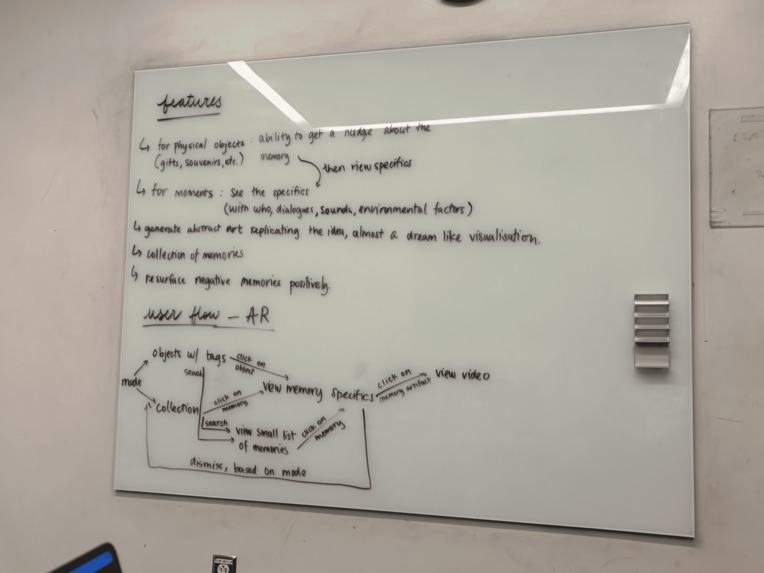 features
↳ for physical objects : ability to get a nudge about the
(gifts, souvenirs, etc.) memory
then view specifics
↳ for moments : see the specifics
(with who, dialogues, sounds, environmental factors)
↳ generate abstract art replicating the idea, almost a dream like visualisation.
↳ collection of memories
↳ resurface negative memories positively.
user flow - AR
objects w/ tags
click on object
search
mode
view memory specifics
click on memory artifact
view video
collection
click on memory
search
view small list
of memories
click on memory
dismiss, based on mode